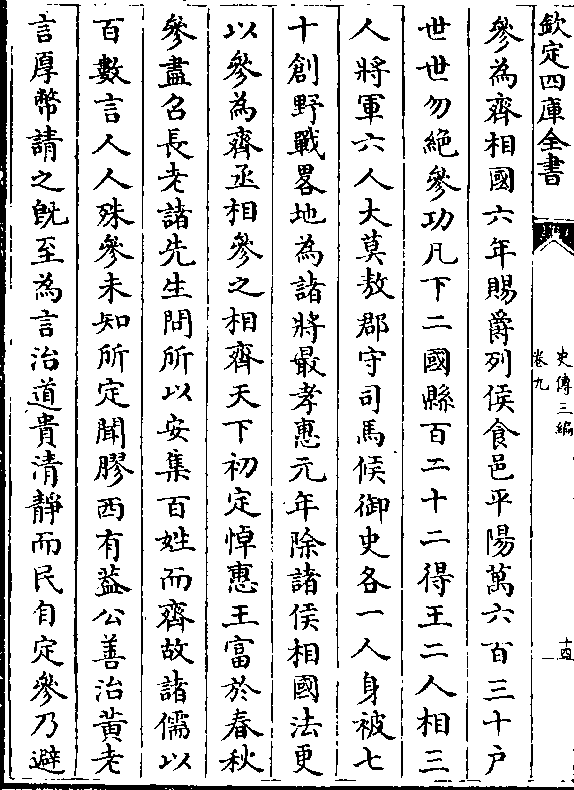 欽定四庫全書
史傳三編
卷九
十四
參為齊相國六年賜爵列侯食邑平陽萬六百三十户
世世勿絶參功凡下二國縣百二十二得王二人相三
人將軍六人大莫敖郡守司馬侯御史各一人身被七
十創野戰畧地為諸將最孝惠元年除諸侯相國法更
以參為齊丞相參之相齊天下初定悼惠王富於春秋
參盡召長老諸先生問所以安集百姓而齊故諸儒以
百數言人人殊參未知所定聞膠西有葢公善治黃老
言厚幣請之旣至為言治道貴清靜而民自定參乃避